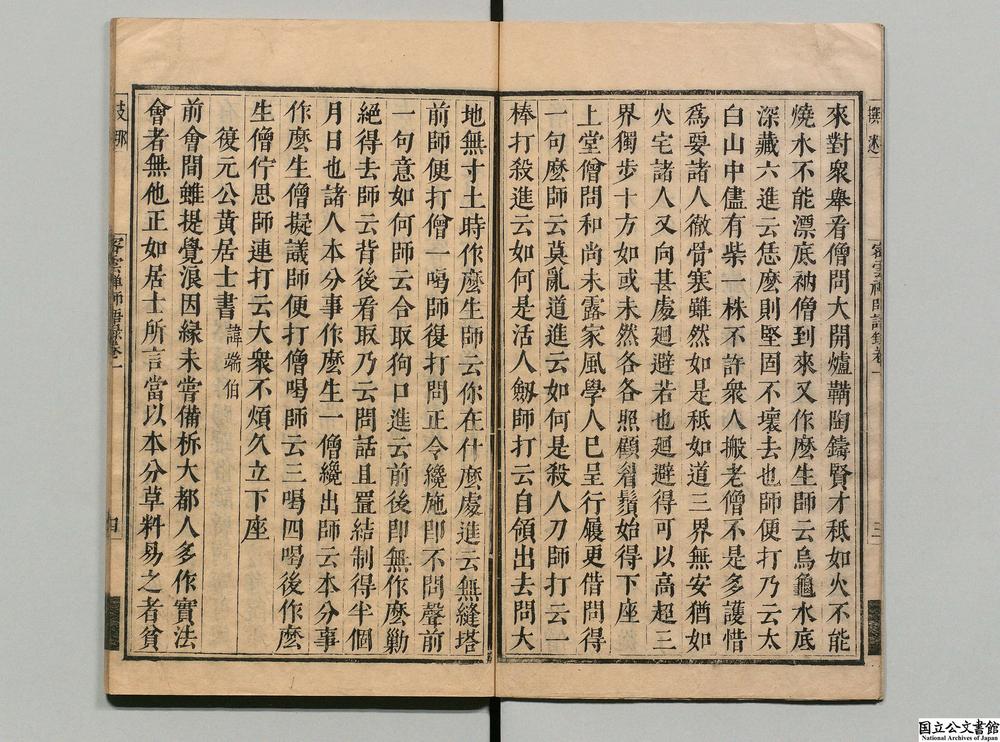 來對衆舉看僧問大開爐鞴陶鑄賢才秪如火不能
燒水不能漂底衲僧到來又作麼生師云烏龜水底
深藏六進云恁麼則堅固不壞去也師便打乃云太
白山中儘有柴一株不許衆人搬老僧不是多護惜
爲要諸人徹骨寒雖然如是秪如道三界無安猶如
火宅諸人又向甚處廻避若也廻避得可以高超三
界獨步十方如或未然各各照顧眉鬚始得下座
上堂僧問和尚未露家風學人已呈行履更借問得
一句麼師云莫亂道進云如何是殺人刀師打云一
棒打殺進云如何是活人劒師打云自領出去問大
地無寸土時作麼生師云你在什麼處進云無縫塔
前師便打僧一喝師復打問正令纔施即不問聲前
一句意如何師云合取狗口進云前後即無作麼勦
絕得去師云背後看取乃云問話且置結制得半個
月日也諸人本分事作麼生一僧纔出師云本分事
作麼生僧擬議師便打僧喝師云三喝四喝後作麼
生僧佇思師連打云大衆不煩久立下座
復元公黃居士書 諱端伯
前會間雖提覺浪因緣未嘗備柝大都人多作實法
會者無他正如居士所言當以本分草料易之者貧
密雲禪師語錄卷一
三
密雲禪師語錄卷一
四
国立公文書館
National Archives of Japan